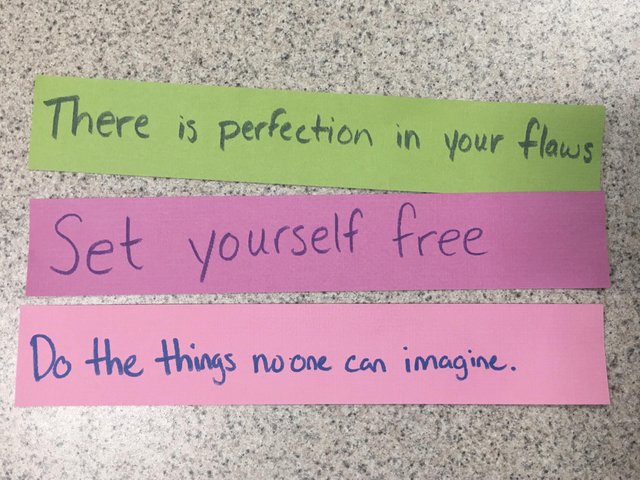 There is perfection in your flaws
Set yourself free
Do the things no one can imagine.